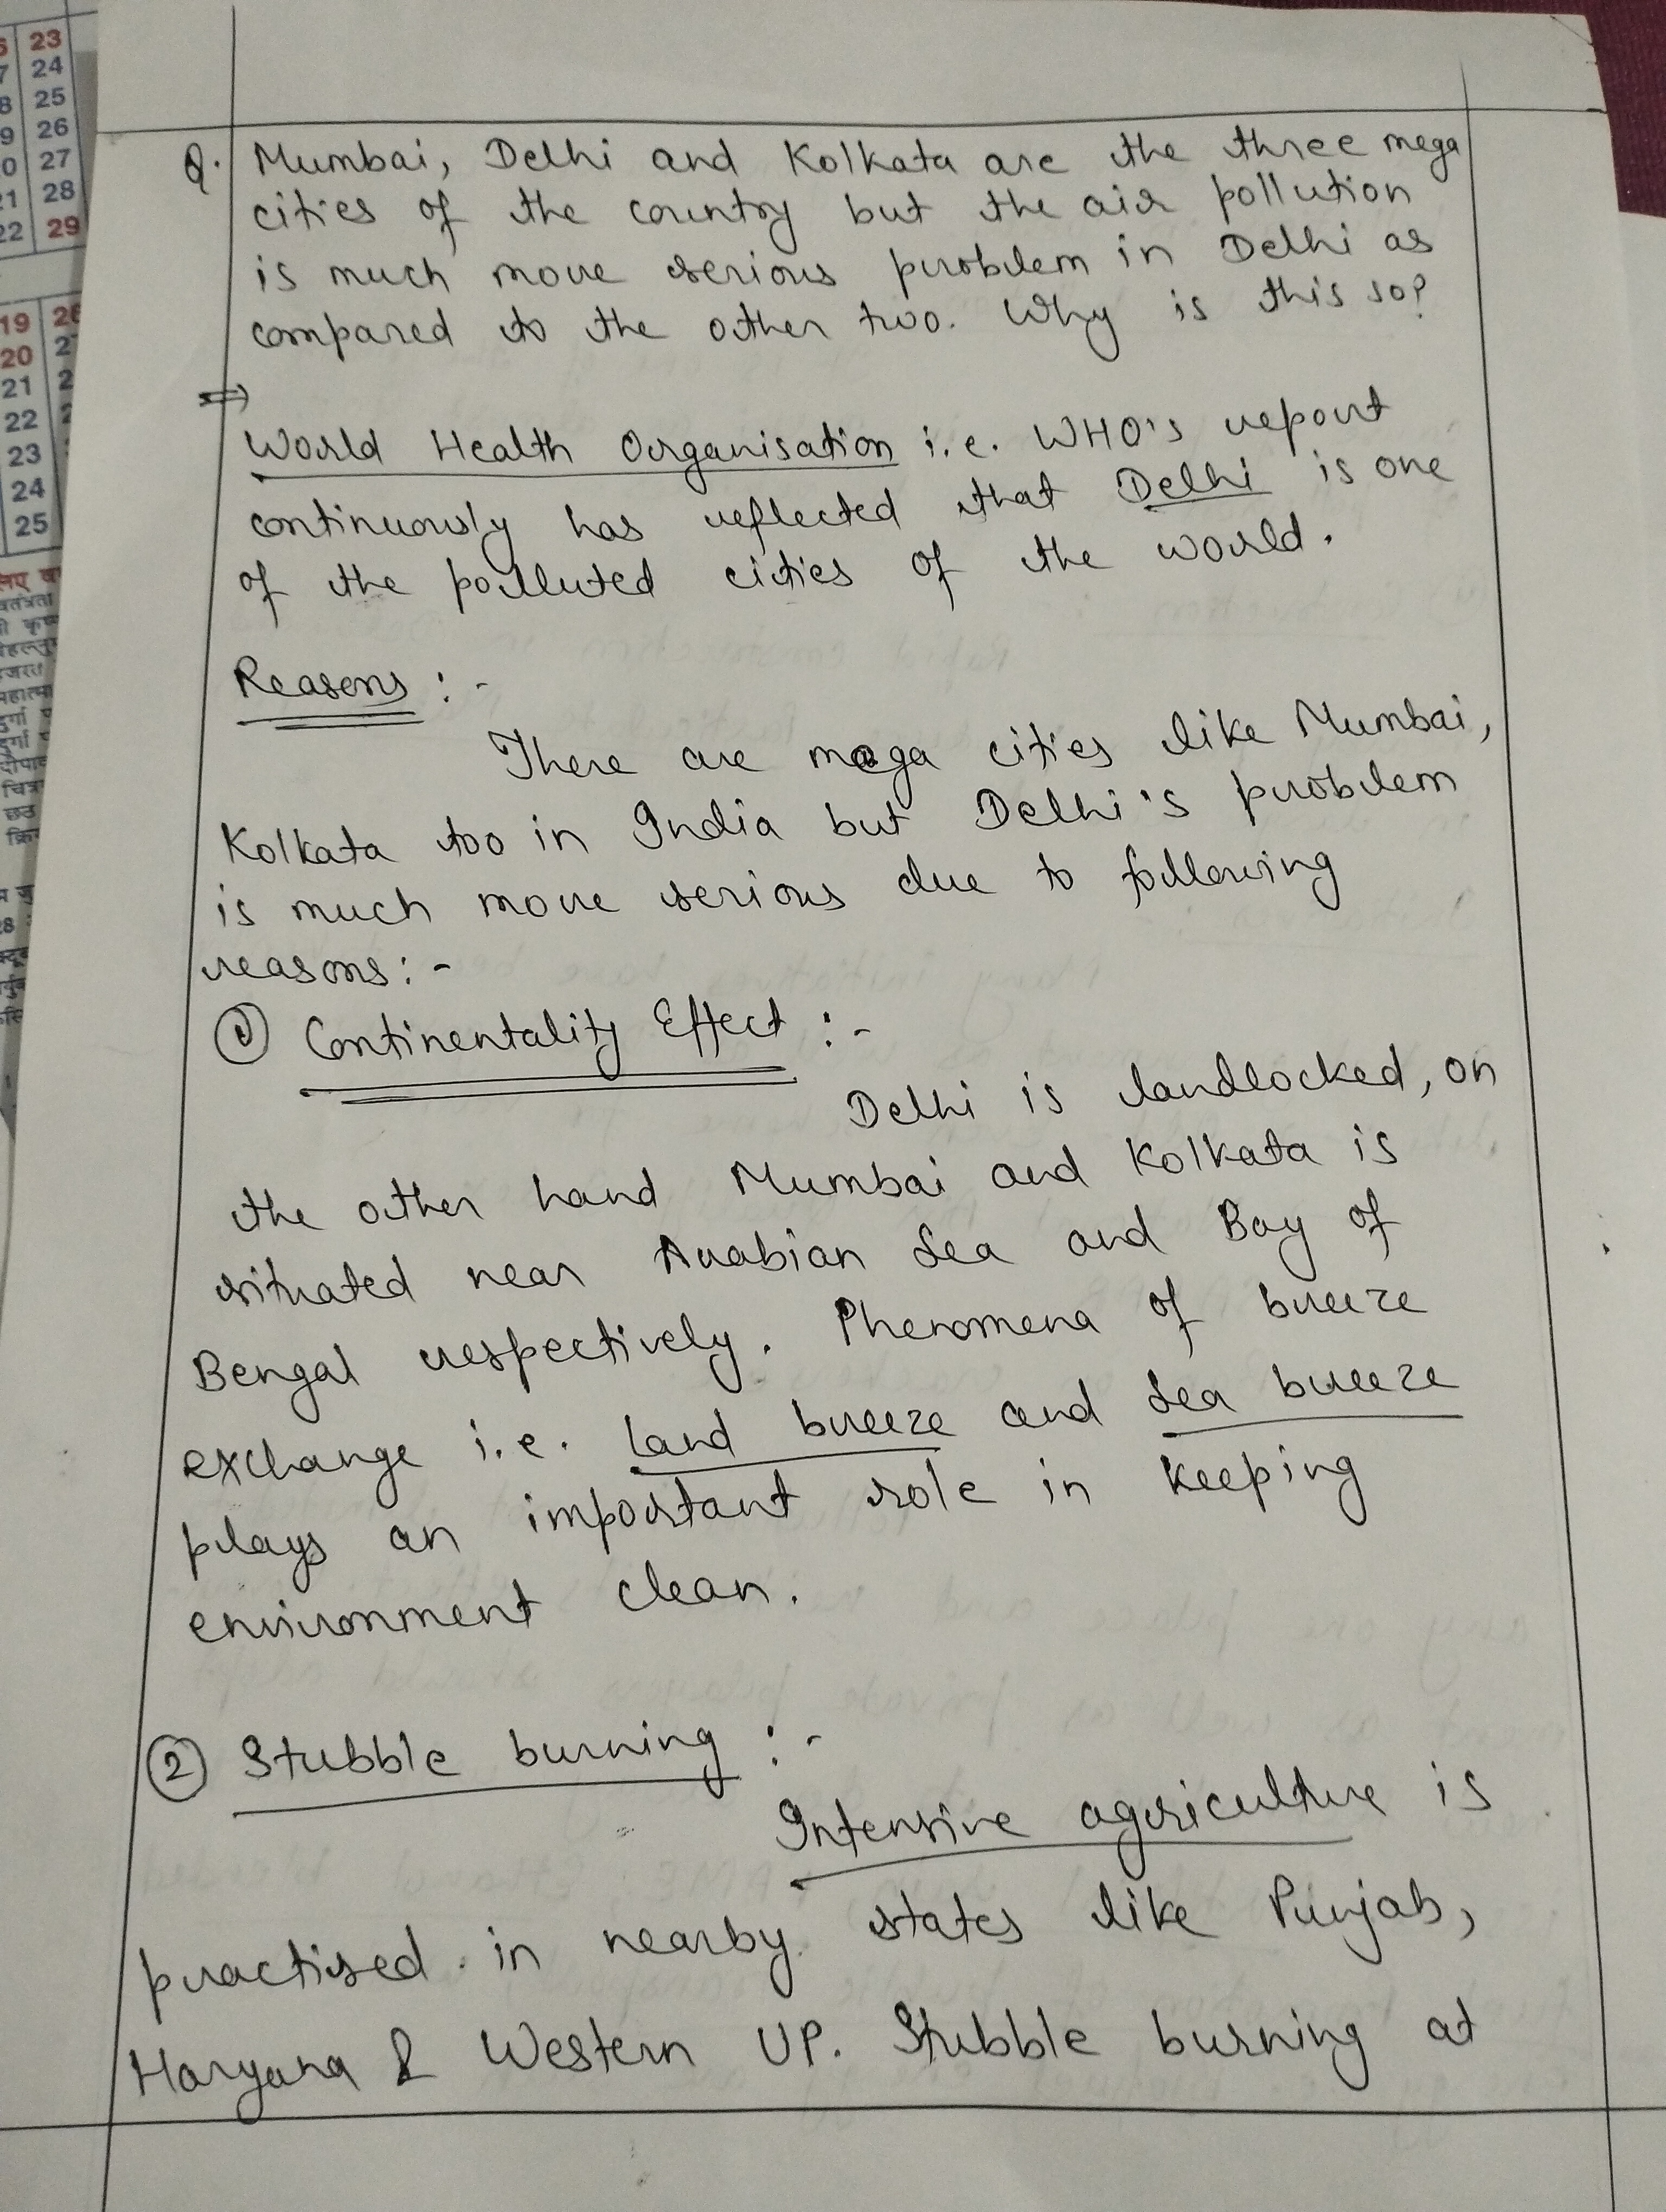 23
24
25
26
27
21 28
22 29
19
20
21
22
23
24
25
Q. Mumbai, Delhi and Kolkata are the three mega
cities of the country but the air pollution
is much more serious problem in Delhi as
compared to the other two. Why is this so?
⇒
World Health Organisation i.e. WHO's report
continuously has reflected that Delhi is one
of the polluted cities of the world.
Reasons :-
There are mega cities like Mumbai,
Kolkata too in India but Delhi's problem
is much more serious due to following
reasons:-
① Continentality Effect :-
Delhi is landlocked, on
the other hand Mumbai and Kolkata is
situated near Arabian Sea and Bay of
Bengal respectively. Phenomena of breeze
exchange i.e. land breeze and sea breeze
plays an important role in keeping
environment clean.
② Stubble burning :-
Intensive agriculture is
practised in nearby states like Punjab,
Haryana & Western UP. Stubble burning at